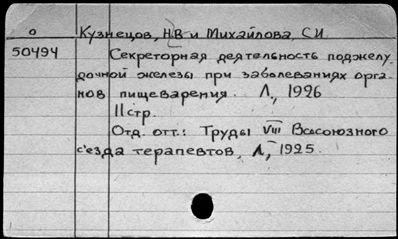 о Кузнецов, Н.В и Михайлова, С.И
50494 Секреторная деятельность поджелу
дочной железы при заболеваниях орга
нов пищеварения. Л., 1926
11стр.
Отд. отт.: Труды VIII Всесоюзного
с'езда терапевтов, Л., 1925.